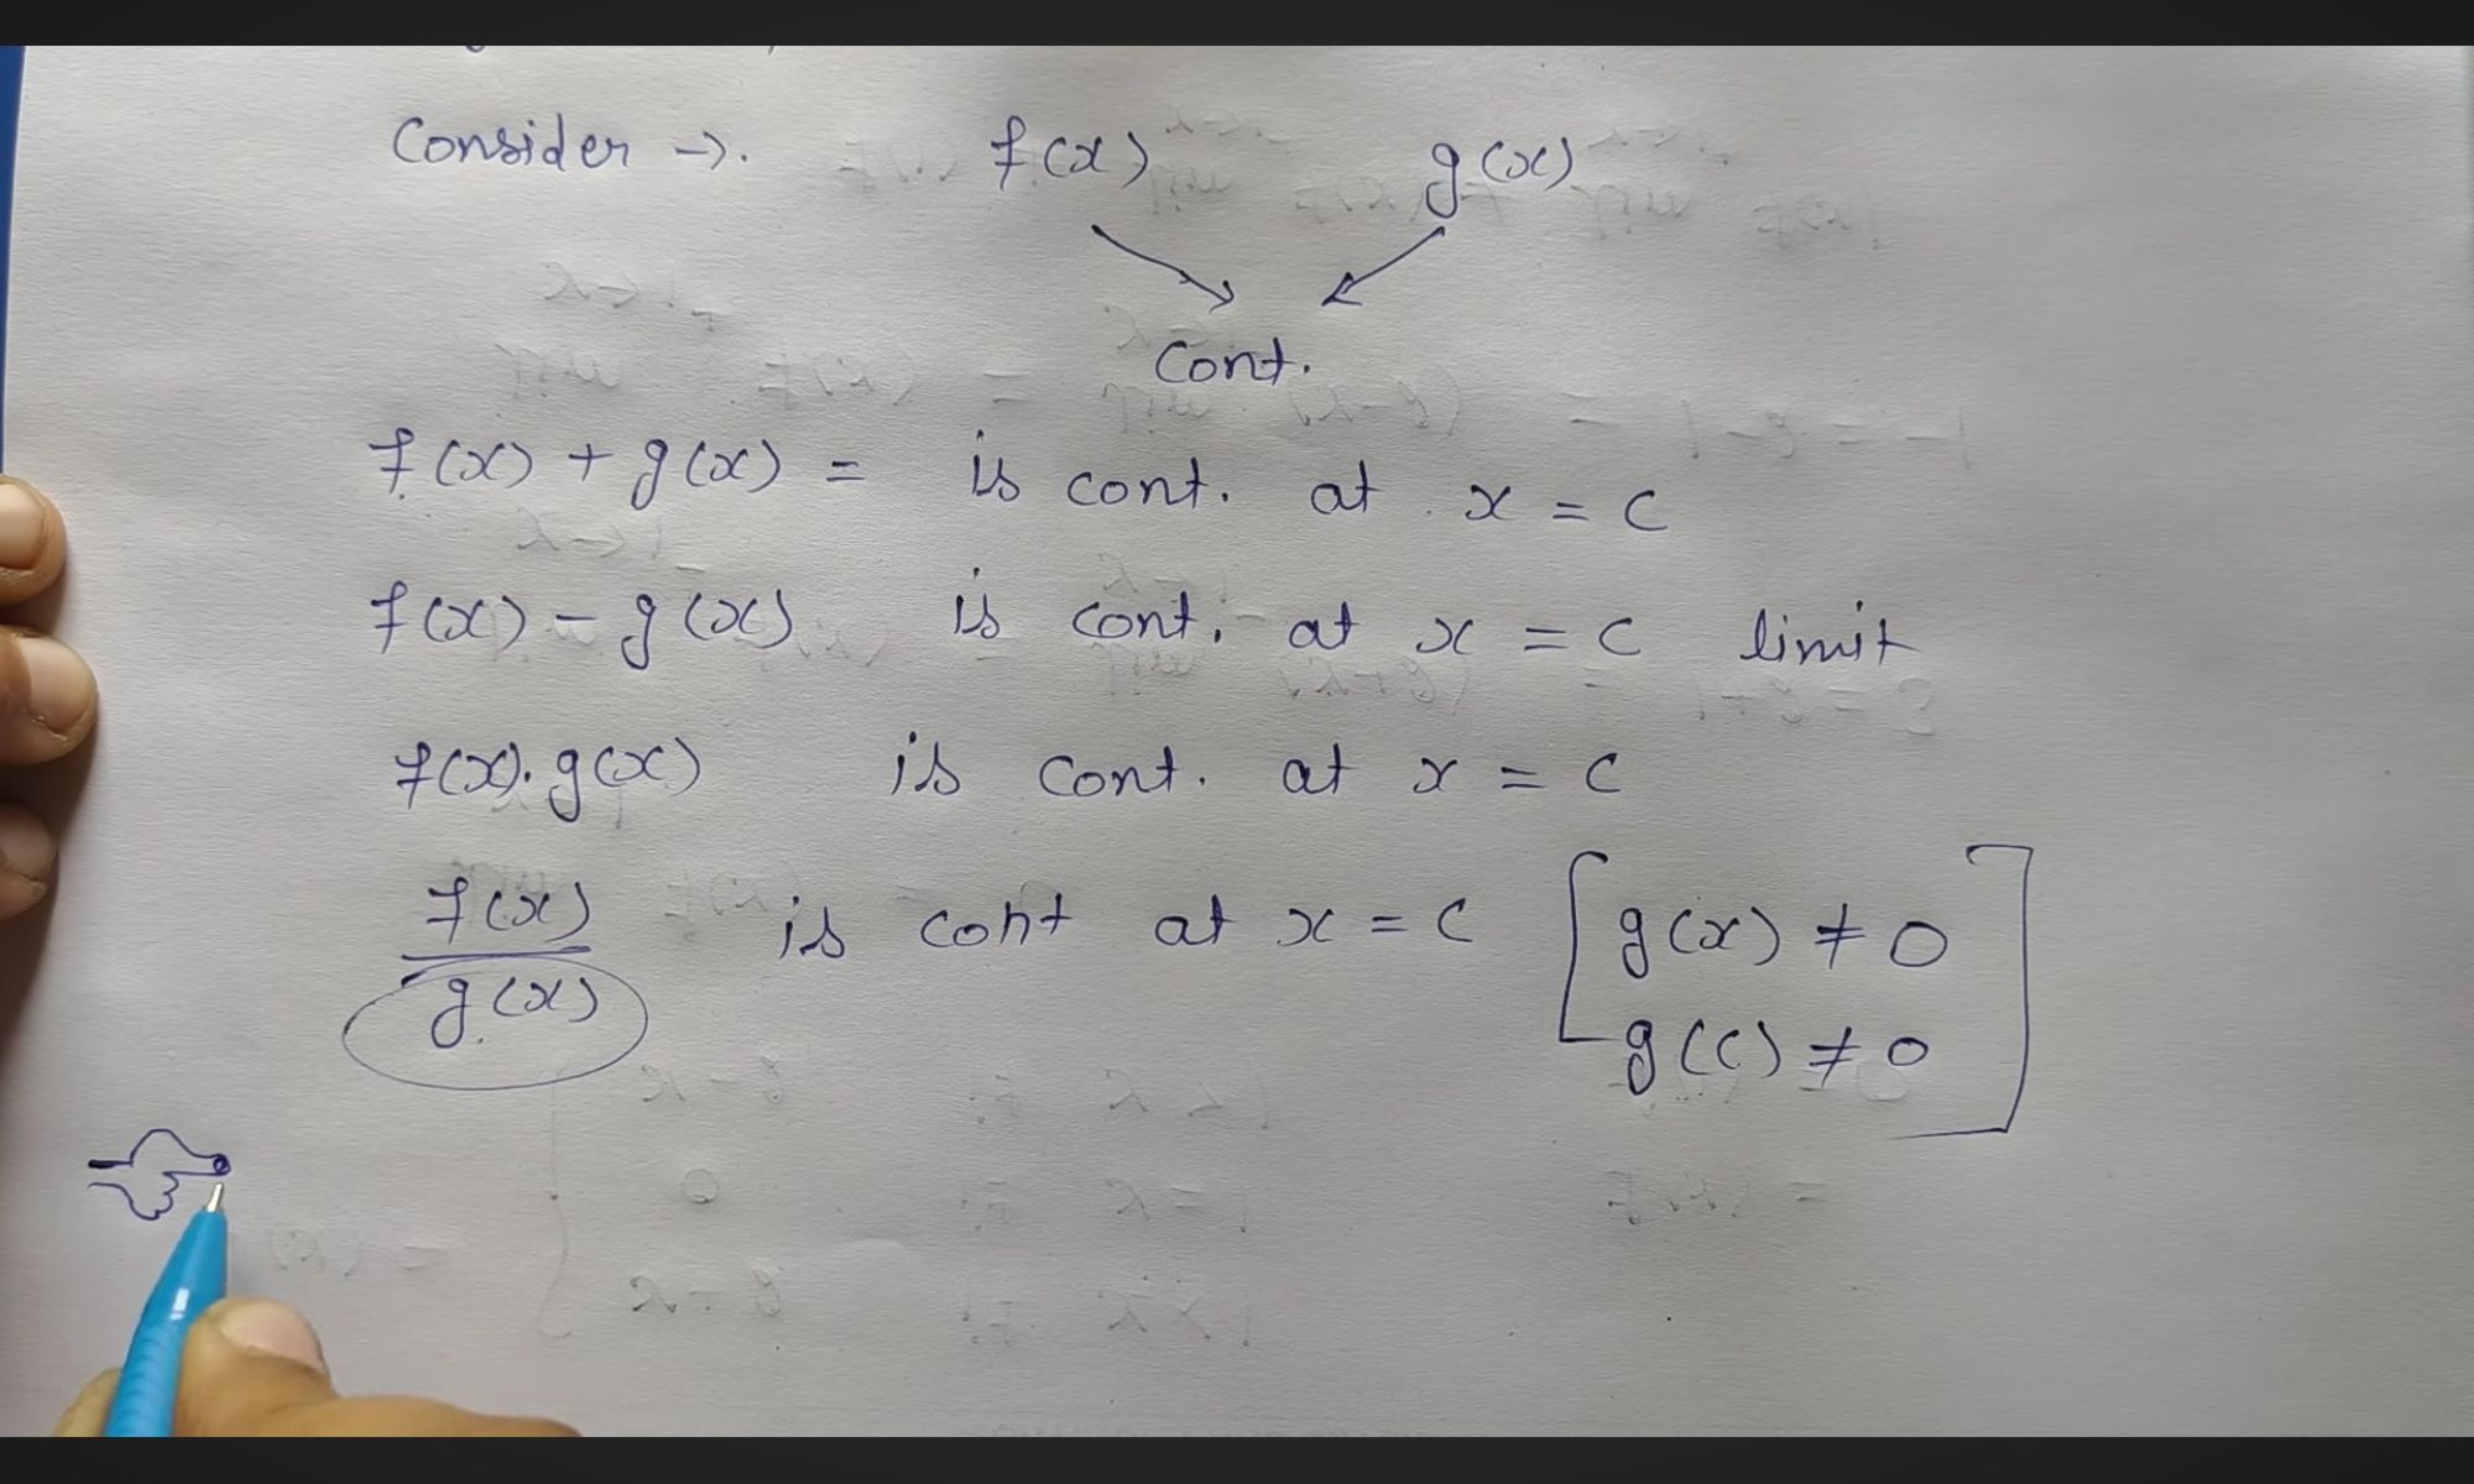 Consider →. f(x) g(x)
Cont.
f(x) + g(x) = is cont. at x = c
f(x) - g(x) is cont. at x = c limit
f(x). g(x) is cont. at x = c
f(x) / g(x) is cont at x = c [g(x) ≠ 0
g(c) ≠ 0]